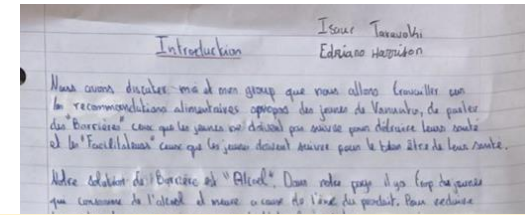 Introduction
Isaac
Edriano Harrison
Nous avons discuter moi et mon group que nous allons travailler sur
les recommenditions alimentaires apropos des jeunes de Vanuatu, de parler
des "Barrières" ceux que les jeunes ne doivent pas suivre pour détruire leurs santé
et les "Facilitateurs" ceux que les jeunes doivent suivre pour le bien êtres de leus santé.
Notre solution de Barrière est "Alcool". Dans notre pays il y a trop des jeunes
qui consomme de l'alcool et meure a cause de l'exe du produit. Pour reduire